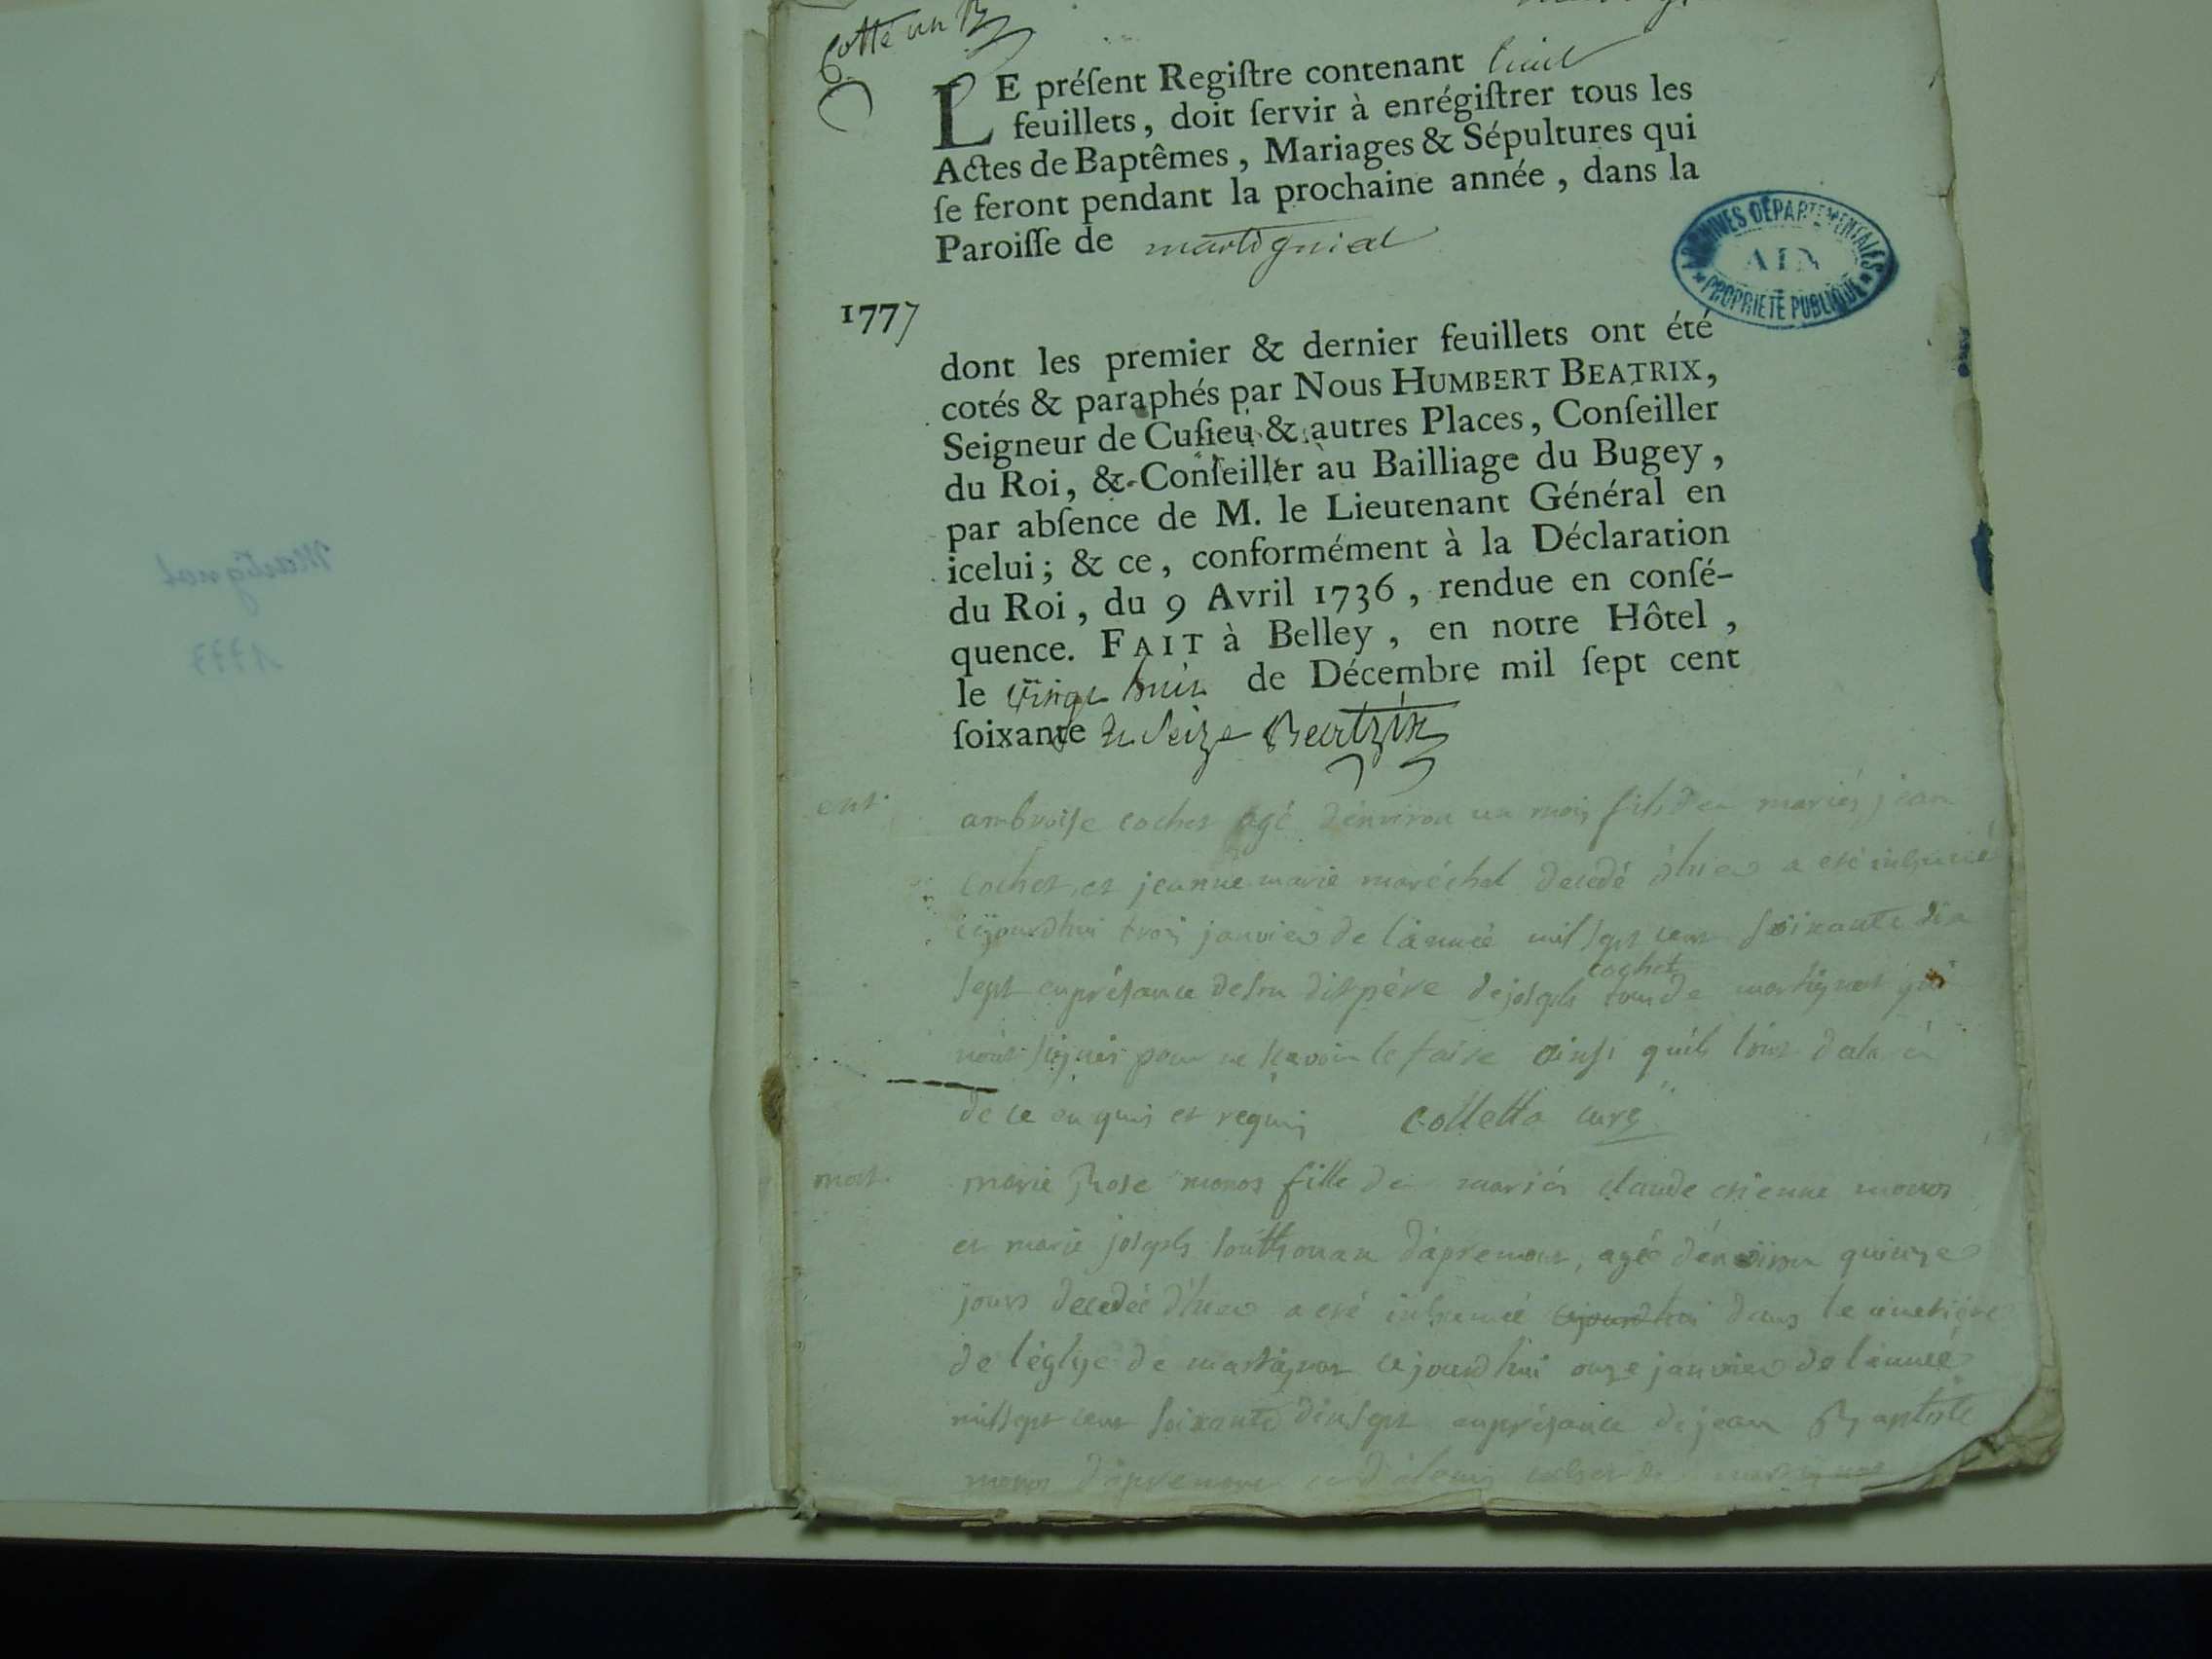 Cotté un B
LE préſent Regiſtre contenant huit
feuillets, doit ſervir à enrégiſtrer tous les
Actes de Baptêmes, Mariages & Sépultures qui
ſe feront pendant la prochaine année, dans la
Paroiſſe de martignial
ARCHIVES DÉPARTEMENTALES
AIN
PROPRIETÉ PUBLIQUE
1777
dont les premier & dernier feuillets ont été
cotés & paraphés par Nous HUMBERT BEATRIX,
Seigneur de Cuſieu & autres Places, Conſeiller
du Roi, & Conſeiller au Bailliage du Bugey,
par abſence de M. le Lieutenant Général en
icelui; & ce, conformément à la Déclaration
du Roi, du 9 Avril 1736, rendue en conſé-
quence. FAIT à Belley, en notre Hôtel,
le vingt huit de Décembre mil ſept cent
ſoixante et seize Beatrix
ent.
ambroise cochet agé d'environ un mois fils de mariés jean
cochet et jeanne marie maréchal decedé d'hier a eté inhumé
cejourdhui trois janvier de l'année mil sept cent soixante dix
sept en présance de son dit père de joseph cochet tous de martignat qui
n'ont signés pour ne scavoir le faire ainsi qu'ils l'ont declaré
de ce enquis et requis Colletta curé
mort.
marie Rose monos fille de mariés claude etienne monos
et marie joseph d'apremont, agé d'environ quinze
jours decedée d'hier a eté inhumé cejourdhui dans le cimetière
de l'église de martignat cejourdhui onze janvier de l'année
mil sept cent soixante dix sept en présance de jean Baptiste
monos d'apremont
Martignat
1777